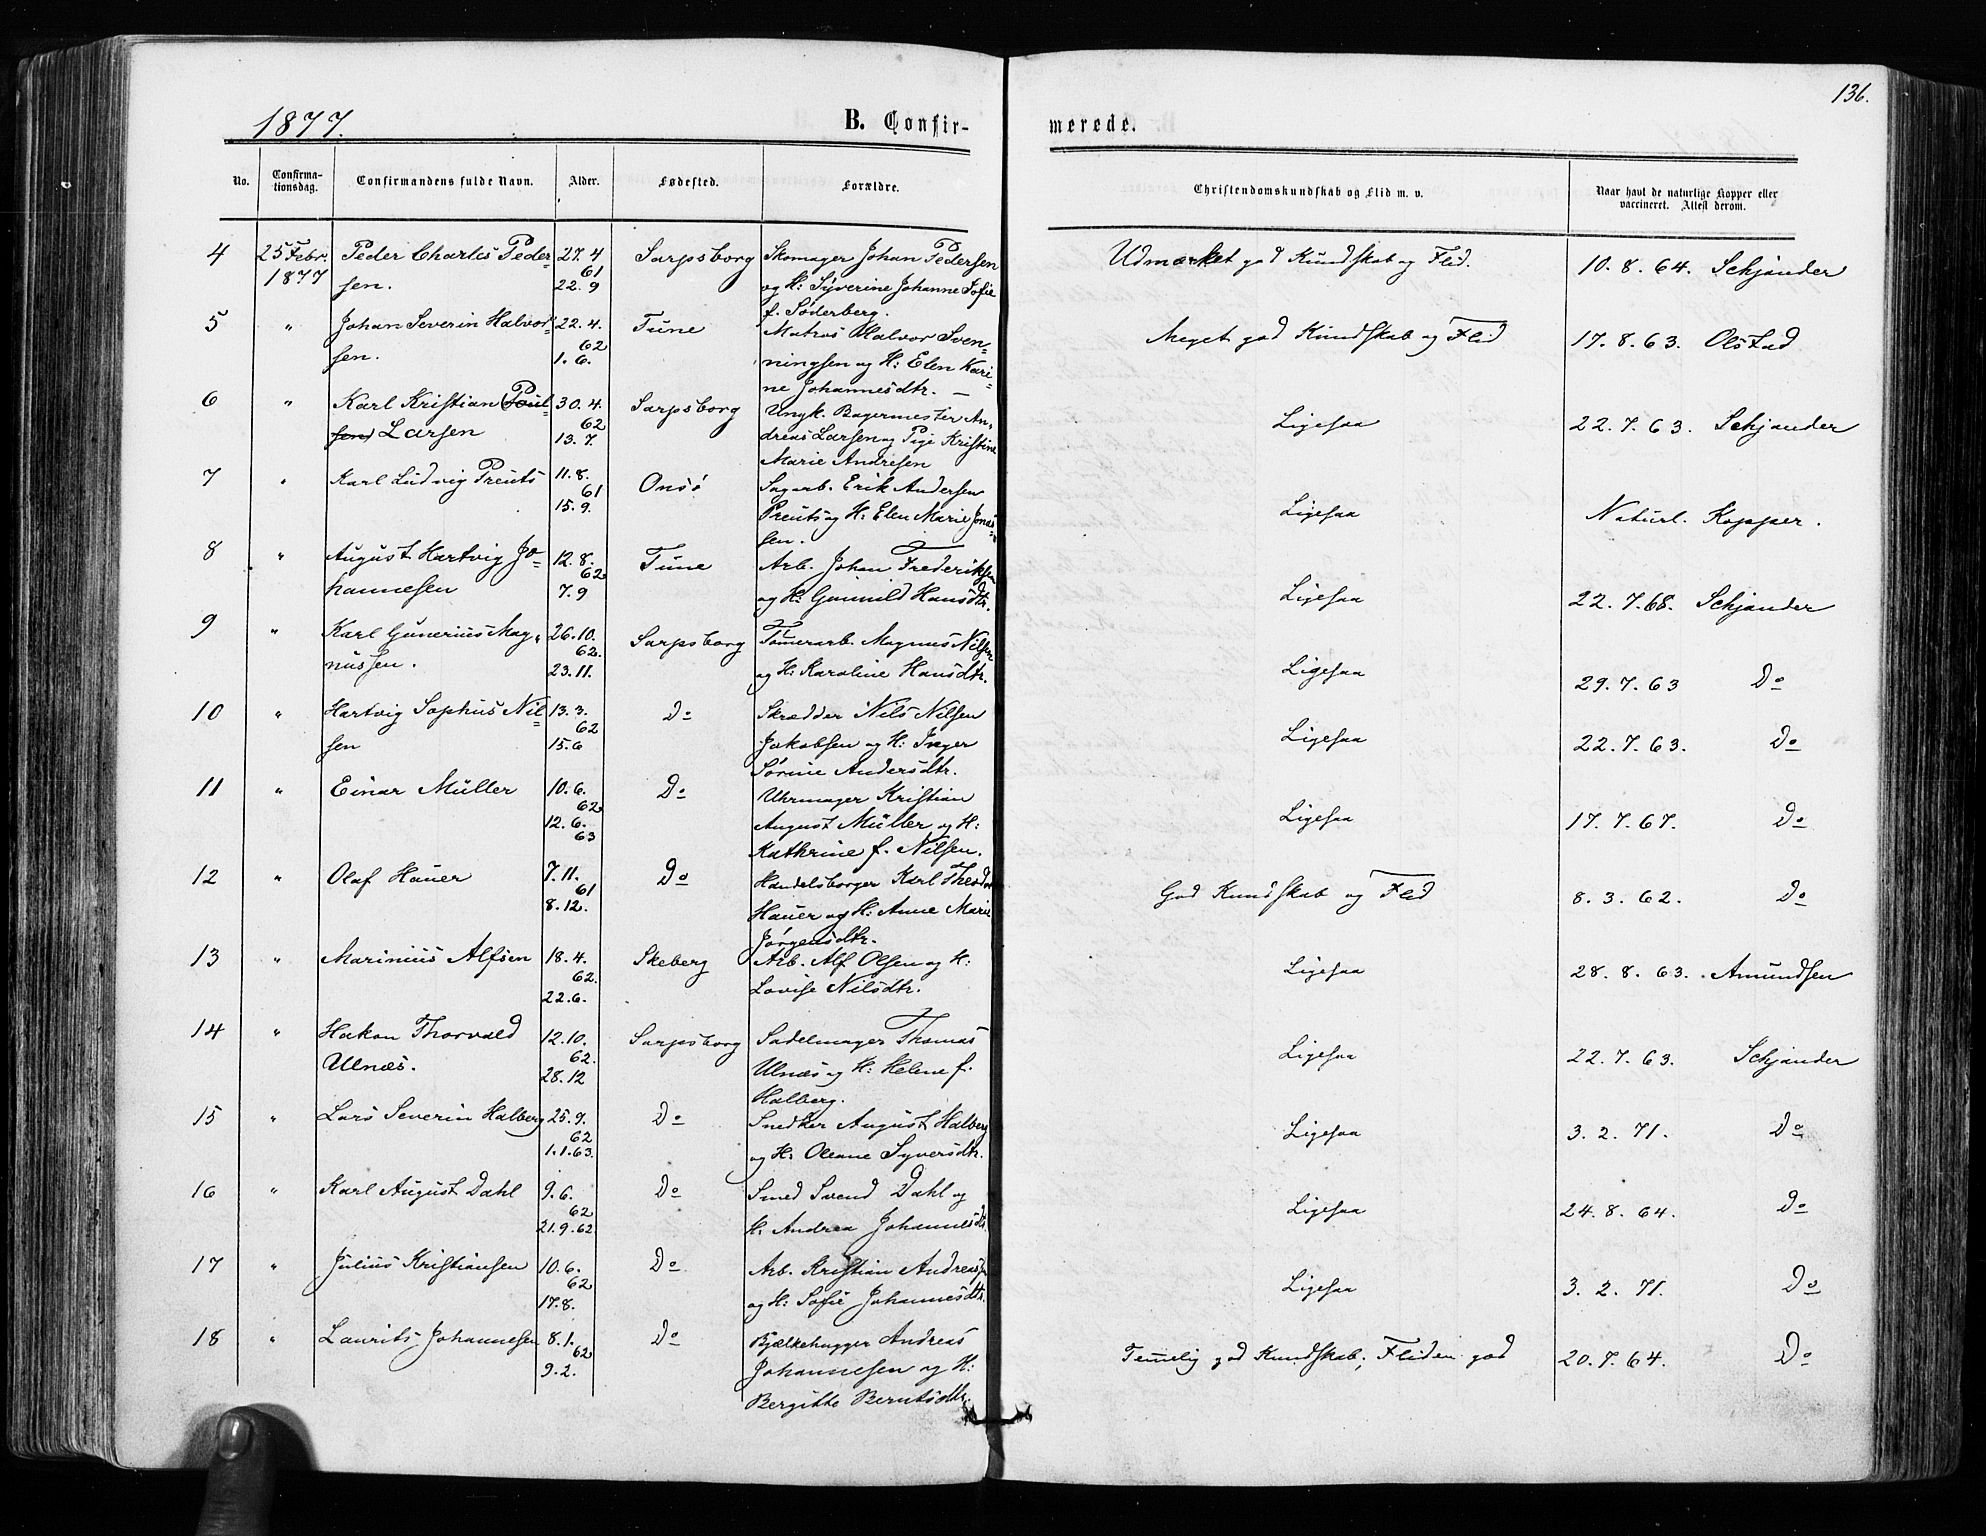 136.
1877. B. Confir- merede.
No. Confirma-tionsdag. Confirmandens fulde Navn. Alder. Fødested. Forældre. Christendomskundskab og Flid m. v. Naar havt de naturlige Kopper eller vaccineret. Attest derom.
4 25 Febr. Peder Charles Peder- 27.4 Sarpsborg Skomager Johan Pedersen Udmærket god Kundskab og Flid. 10. 8. 64. Schjander
1877 sen. 61 22.9 og H: Syverine Johanne Sofie
f. Søderberg.
5 " Johan Severin Halvor- 22.4. Tune Matros Halvor Sven- Meget god Kundskab og Flid 17. 8. 63. Olstad
sen. 62 1.6. ningsen og H: Elen Kari-
ne Johannesdtr. —
6 " Karl Kristian (Poul- 30.4. Sarpsborg Ungk. Bagermester An- Ligesaa 22. 7. 63. Schjander
sen) Larsen 62 13.7. dreas Larsen og Pige Kristine
Marie Andresen
7 " Karl Ludvig Preuts 11.8. Onsø Sagarb. Erik Andersen Ligesaa Naturl. Kopper.
61 15.9. Preuts og H: Elen Marie Jonas-
sen.
8 " August Hartvig Jo- 12.8. Tune Arb. Johan Frederiksen Ligesaa 22. 7. 68. Schjander
hannesen 62 7.9 og H: Gunnild Hansdtr.
9 " Karl Gunerius Mag- 26.10. Sarpsborg Tømerarb. Magnus Nilsen Ligesaa 29. 7. 63 Do
nussen. 62. 23.11. og H: Karoline Hansdtr.
10 " Hartvig Sophus Nil- 13.3. Do Skrædder Nils Nilsen Ligesaa 22. 7. 63. Do
sen 62 15.6 Jakobsen og H: Inger
Sørine Andersdtr.
11 " Einar Müller 10.6. Do Uhrmager Kristian Ligesaa 17. 7. 67. Do
62 12.6. August Müller og H:
63 Kathrine f. Nilsen.
12 " Olaf Hauer 7.11. Do Handelsborger Karl Theodor God Kundskab og Flid 8. 3. 62. Do
61 8.12. Hauer og H: Anne Marie
Jørgensdtr.
13 " Marinius Alfsen 18.4. Skeberg Arb. Alf Olsen og H: Ligesaa 28. 8. 63. Amundsen
62. 22.6. Lovise Nilsdtr.
14 " Hakon Thorvald 12.10. Sarpsborg Sadelmager Thomas Ligesaa 22. 7. 63. Schjander
Ulnæs. 62. 28.12 Ulnæs og H: Helene f.
Halberg.
15 " Lars Severin Halberg 25.9. Do Snedker August Halberg Ligesaa 3. 2. 71. Do
62 1.1.63. og H: Oleane Syversdtr.
16 " Karl August Dahl 9.6. Do Smed Svend Dahl og Ligesaa 24. 8. 64. Do
62 21.9.62 H: Andrea Johannesdtr.
17 " Julius Kristiansen 10.6. Do Arb. Kristian Andreassen Ligesaa 3. 2. 71. Do
62 17.8. og H: Sofie Johannesdtr.
18 " Laurits Johannesen 8.1. Do Bjælkehugger Andreas Temelig god Kundskab; Fliden god 20. 7. 64. Do
62 9.2. Johannesen og H:
Bergitte Berntsdtr.